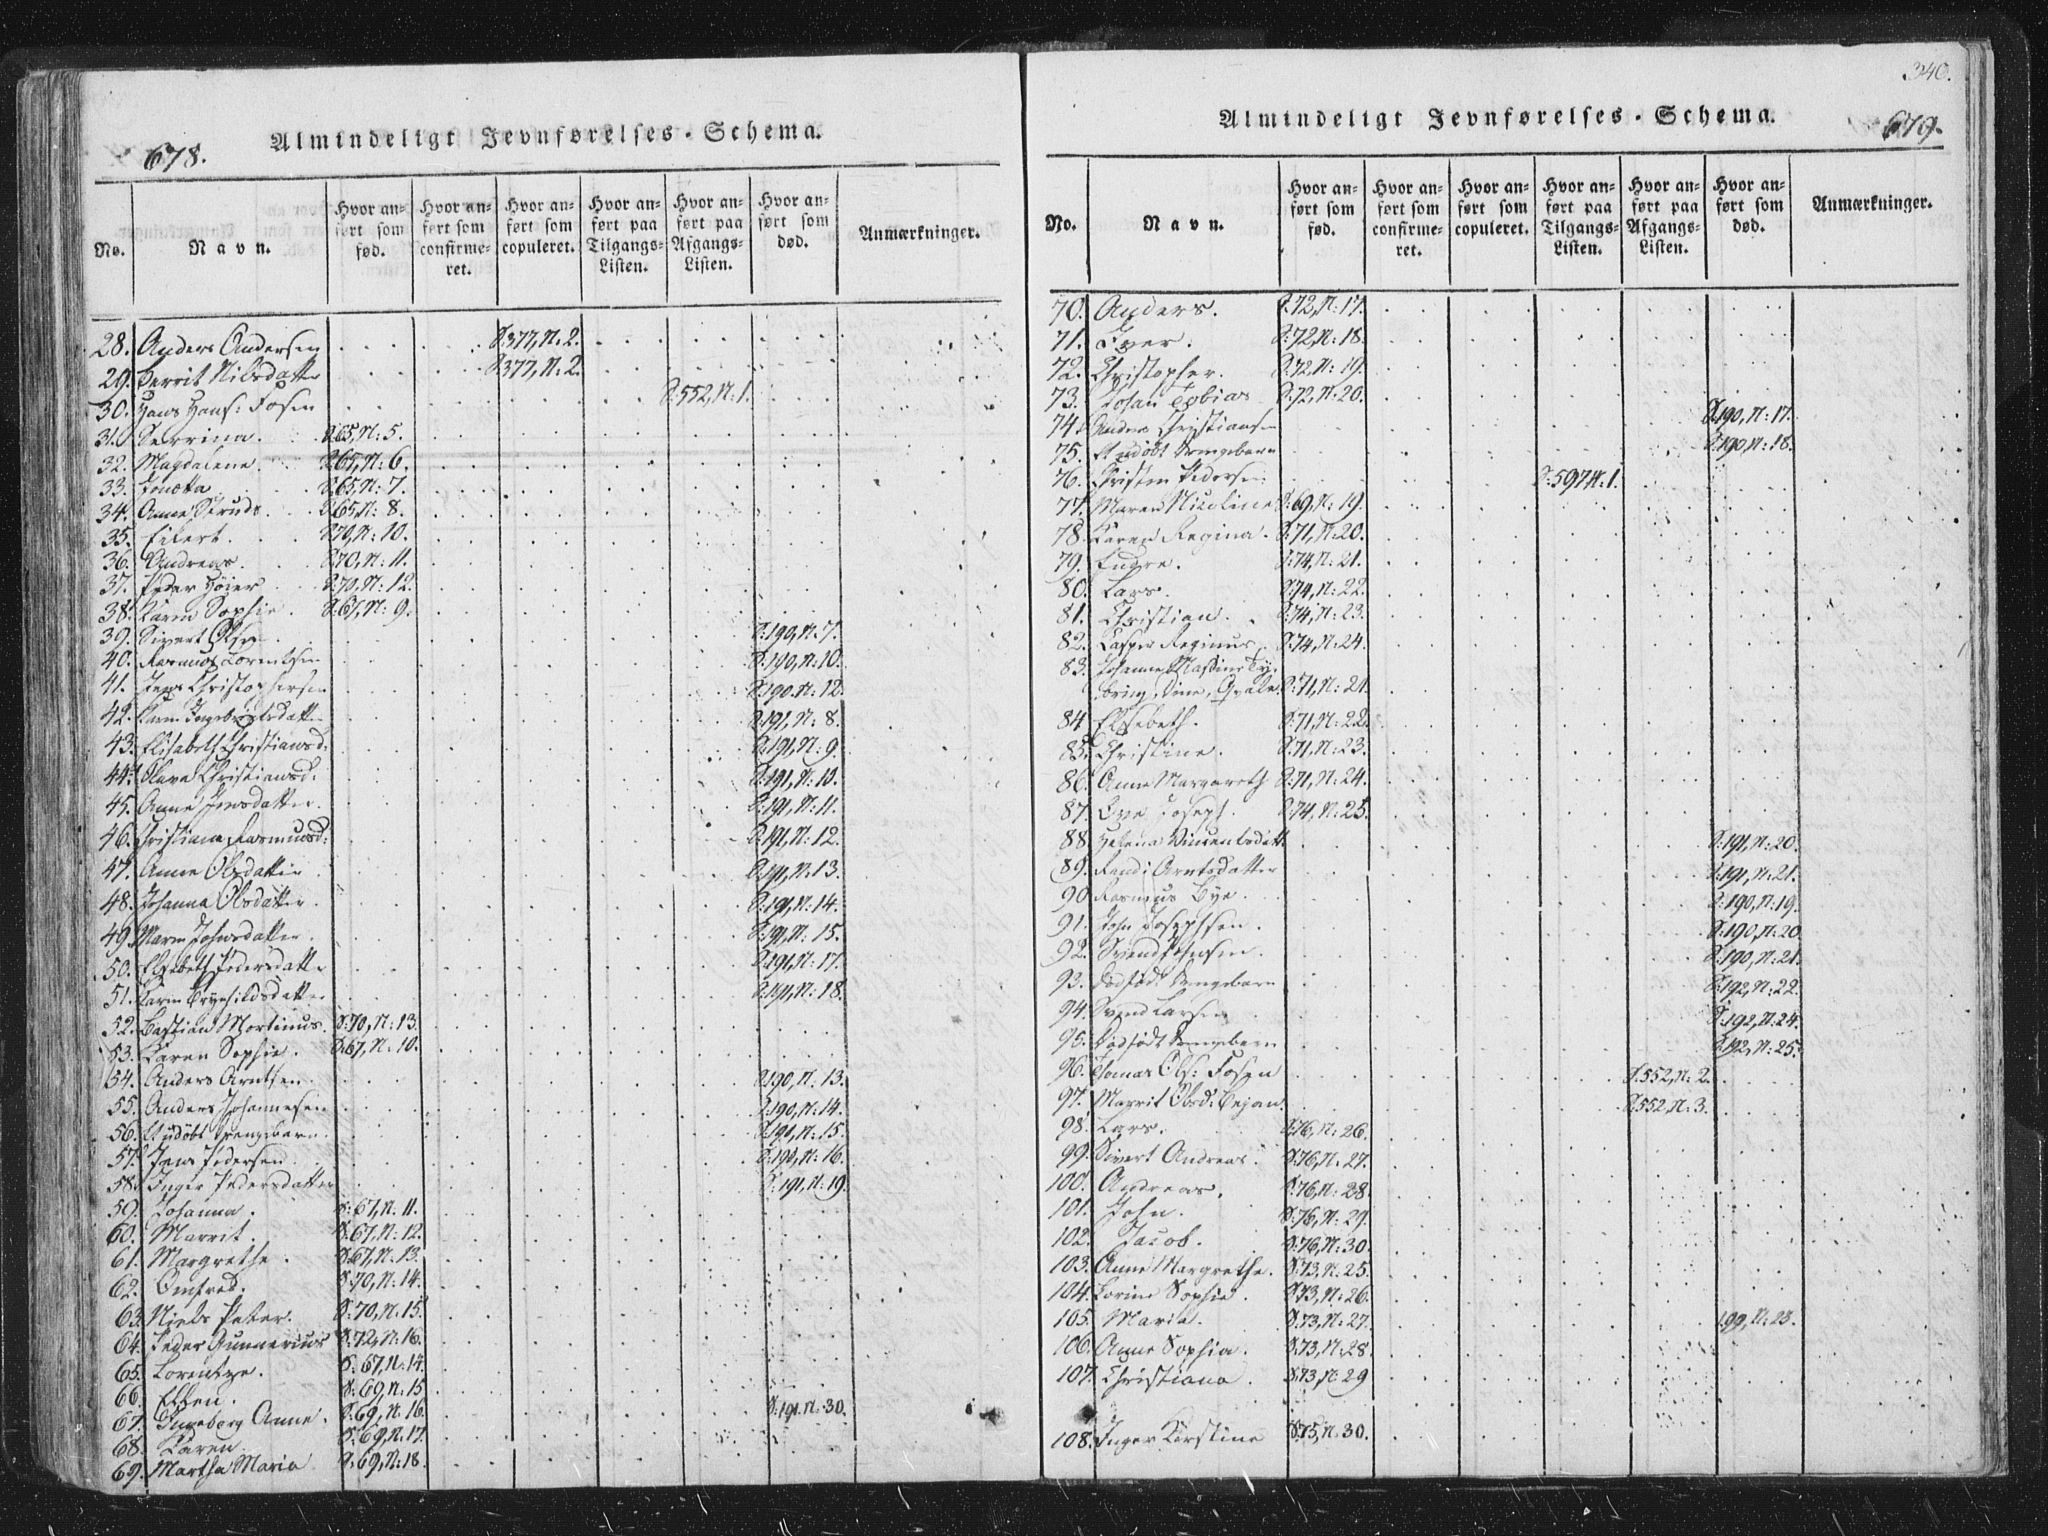 678.
Almindeligt Jevnførelses-Schema.
No.
Navn.
Hvor anført som fød.
Hvor anført som confirmeret.
Hvor anført som copuleret.
Hvor anført paa Tilgangs-Listen.
Hvor anført paa Afgangs-Listen.
Hvor anført som død.
Anmærkninger.
28. Anders Andersen S:377, N: 2.
29. Berrit Nilsdatter S:377, N: 2.
30. Hans Hans: Fosen S:552, N: 1.
31. Serrina. S:65, N: 5.
32. Magdalene. S:65, N: 6.
33. S:65, N: 7.
34. Anne S:65, N: 8.
35. Eilert. S:70, N: 10.
36. Andreas. S:70, N: 11.
37. Peder Høier S:70, N: 12.
38. Karen Sophie. S:67, N: 9.
39. Sivert Olsen. S:190, N: 7.
40. Rasmus Lorentsen S:190, N: 10.
41. Jens Christophersen S:190, N: 12.
42. Karen Ingebrigtsdatter S:191, N: 8.
43. Elisabeth Christiansd: S:191, N: 9.
44. Olava Christiansd: S:191, N: 10.
45. Anne Jensdatter. S:191, N: 11.
46. Christiana Rasmusd: S:191, N: 12.
47. Anne Olsdatter S:191, N: 13.
48. Johanna Olsdatter. S:191, N: 14.
49. Maren Johnsdatter. S:191, N: 15.
50. Elsebeth Pedersdatter S:191, N: 17.
51. Karen Brynhildsdatter S:191, N: 18.
52. Bastian Mortinus. S:70, N: 13.
53. Karen Sophie. S:67, N: 10.
54. Anders Arntsen. S:190, N: 13.
55. Anders Johannesen S:190, N: 14.
56. Et udøbt Drengebarn. S:190, N: 15.
57. Jens Pedersen. S:190, N: 16.
58. Inger Pedersdatter S:191, N: 19.
59. Johanna. S:67, N: 11.
60. Marrit. S:67, N: 12.
61. Margrethe. S:67, N: 13.
62. Omfred. S:70, N: 14.
63. Niels Peter. S:70, N: 15.
64. Peder Gunnerius S:72, N: 16.
65. Lorentze. S:67, N: 14.
66. Ellen. S:69, N: 15
67. Ingeborg Anne. S:69, N: 16. S:191, N: 30.
68. Karen. S:69, N: 17.
69. Martha Maria. S:69, N: 18.
340.
679.
Almindeligt Jevnførelses-Schema.
No.
Navn.
Hvor anført som fød.
Hvor anført som confirmeret.
Hvor anført som copuleret.
Hvor anført paa Tilgangs-Listen.
Hvor anført paa Afgangs-Listen.
Hvor anført som død.
Anmærkninger.
70. Anders. S:72, N: 17.
71. Iver. S:72, N: 18.
72. Christopher. S:72, N: 19.
73. Johan Tobias S:72, N: 20.
74. Anders Christiansen S:190, N: 17.
75. Et udøbt Drengebarn S:190, N: 18.
76. Christen Pedersen S:597 N: 1.
77. Maren Nicoline S:69, N: 19.
78. Karen Regina. S:71, N: 20.
79. Endre. S:74, N: 21.
80. Lars. S:74, N: 22.
81. Christian. S:74, N: 23.
82. Casper Reginus. S:74, N: 24.
83. Johanne S:71, N: 21.
84. Elsebeth. S:71, N: 22.
85. Christine. S:71, N: 23.
86. Anne Margareth S:71, N: 24.
87. Ove Joseph. S:74, N: 25.
88. Helena Vincentsdatt: S:191, N: 20.
89. Randi Arntsdatter S:191, N: 21.
90. Rasmus Bye. S:190, N: 19.
91. John Josephsen. S:190, N: 20
92. Svend Johnsen. S:190, N: 21.
93. Dødfødt Drengebarn S:192, N: 22.
94. Svend Larsen S:192, N: 24.
95. Dødfødt Drengebarn S:192, N: 25.
96. Tomas Ols: Fosen S:552, N: 2.
97. Marrit Olsd: Bejan. S:552, N: 3.
98. Lars. S:76, N: 26.
99. Sivert Andreas. S:76, N: 27.
100. Andreas. S:76, N: 28.
101. John. S:76, N: 29.
102. Jacob. S:76, N: 30.
103. Anne Margrethe. S:73, N: 25.
104. Lorine Sophie. S:73, N: 26.
105. Maria. S:73, N: 27. 199, N: 23.
106. Anne Sophia. S:73, N: 28.
107. Christiana. S:73, N: 29
108. Inger Kirstine S:75, N: 30.